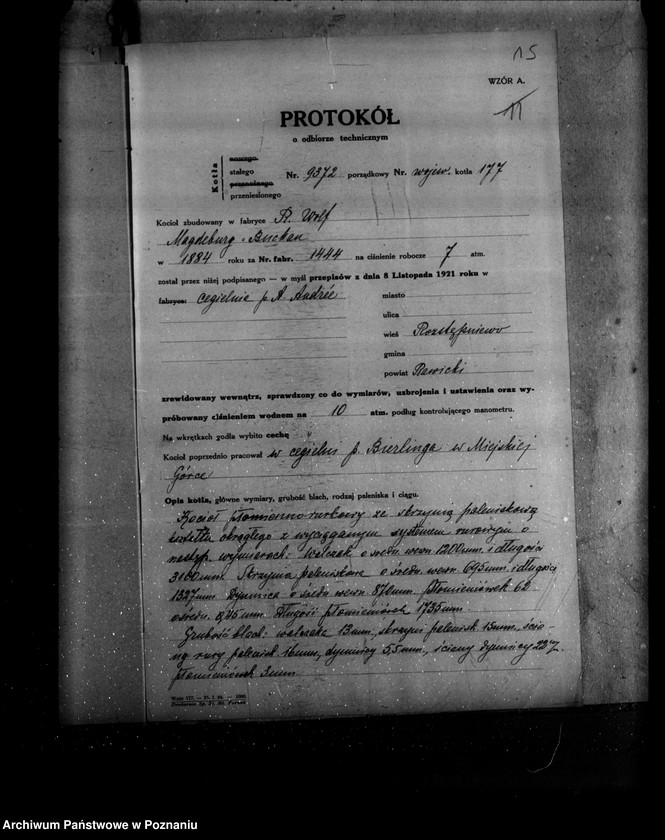 15
WZÓR A.
11
PROTOKÓŁ
o odbiorze technicznym
Kotła
nowego
stałego
przenośnego
przeniesionego
Nr. 9372 porządkowy Nr. wojew. kotła 177
Kocioł zbudowany w fabryce R. Wolf
Magdeburg-Buckau
w 1884 roku za Nr. fabr. 1444 na ciśnienie robocze 7 atm.
został przez niżej podpisanego — w myśl przepizów z dnia 8 Listopada 1921 roku w
fabryce: cegielnie p. A. Andrée
miasto
ulica
wieś Rozstępniewo
gmina
powiat Rawicki
zrewidowany wewnątrz, sprawdzony co do wymiarów, uzbrojenia i ustawienia oraz wy-
próbowany ciśnieniem wodnem na 10 atm. podług kontrolującego manometru.
Na wkrętkach godła wybito cechę
Kocioł poprzednio pracował w cegielni p. Bierlinga w Miejskiej
Górce
Opis kotła, główne wymiary, grubość blach, rodzaj paleniska i ciągu.
Kocioł płomienno-rurkowy ze skrzynią paleniskową
kształtu okrągłego z wyciąganym systemem rurowym o
następ. wymiarach: walczak o średn. wewn. 1200 mm. i długości
3100 mm. Skrzynia paleniskowa o średn. wewn. 695 mm. i długości
1327 mm. Dymnica o średn. wewn. 870 mm. Płomieniówek 62
o średn. mm. Długość płomieniówek 1735 mm.
Grubość blach: walczaka 13 mm, skrzyni palenisk 13 mm,
rury palenisk 16 mm, dymnicy 5,5 mm, ściany dymnicy 22
płomieniówek 3 mm.
Archiwum Państwowe w Poznaniu